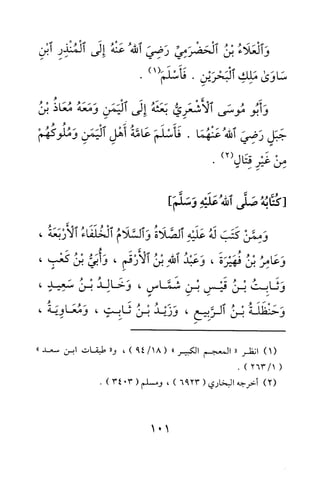 وَٱلْعَلَاءُ بْنُ ٱلْحَضْرَمِيِّ رَضِيَ ٱللهُ عَنْهُ إِلَى ٱلْمُنْذِرِ ٱبْنِ
سَاوَىٰ مَلِكِ ٱلْبَحْرَيْنِ . فَأَسْلَمَ(١) .
وَأَبُو مُوسَى ٱلْأَشْعَرِيُّ بَعَثَهُ إِلَى ٱلْيَمَنِ وَمَعَهُ مُعَاذُ بْنُ
جَبَلٍ رَضِيَ ٱللهُ عَنْهُمَا . فَأَسْلَمَ عَامَّةُ أَهْلِ ٱلْيَمَنِ وَمُلُوكُهُمْ
مِنْ غَيْرِ قِتَالٍ(٢) .
[كُتَّابُهُ صَلَّى ٱللهُ عَلَيْهِ وَسَلَّمَ]
وَمِمَّنْ كَتَبَ لَهُ عَلَيْهِ ٱلصَّلَاةُ وَٱلسَّلَامُ ٱلْخُلَفَاءُ ٱلْأَرْبَعَةُ ،
وَعَامِرُ بْنُ فُهَيْرَةَ ، وَعَبْدُ ٱللهِ بْنُ ٱلْأَرْقَمِ ، وَأُبَيُّ بْنُ كَعْبٍ ،
وَثَابِتُ بْنُ قَيْسِ بْنِ شَمَّاسٍ ، وَخَالِدُ بْنُ سَعِيدٍ ،
وَحَنْظَلَةُ بْنُ ٱلرَّبِيعِ ، وَزَيْدُ بْنُ ثَابِتٍ ، وَمُعَاوِيَةُ ،
(١) انظر « المعجم الكبير » ( ٩٤/١٨ ) ، و« طبقات ابن سعد »
( ٢٦٣/١ ) .
(٢) أخرجه البخاري ( ٦٩٢٣ ) ، ومسلم ( ٣٤٠٣ ) .
١٠١